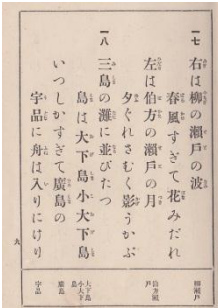 一七 右は柳の瀬戸の波
春風すぎて花みだれ
左は伯方の瀬戸の月
夕ぐれさむく影うかぶ
一八 三島の灘に並びたつ
島は大下島小大下島
いつしかすぎて廣島の
宇品に舟は入りにけり
柳瀬戸
伯方瀬戸
大下島
小大下島
廣島
宇品
九